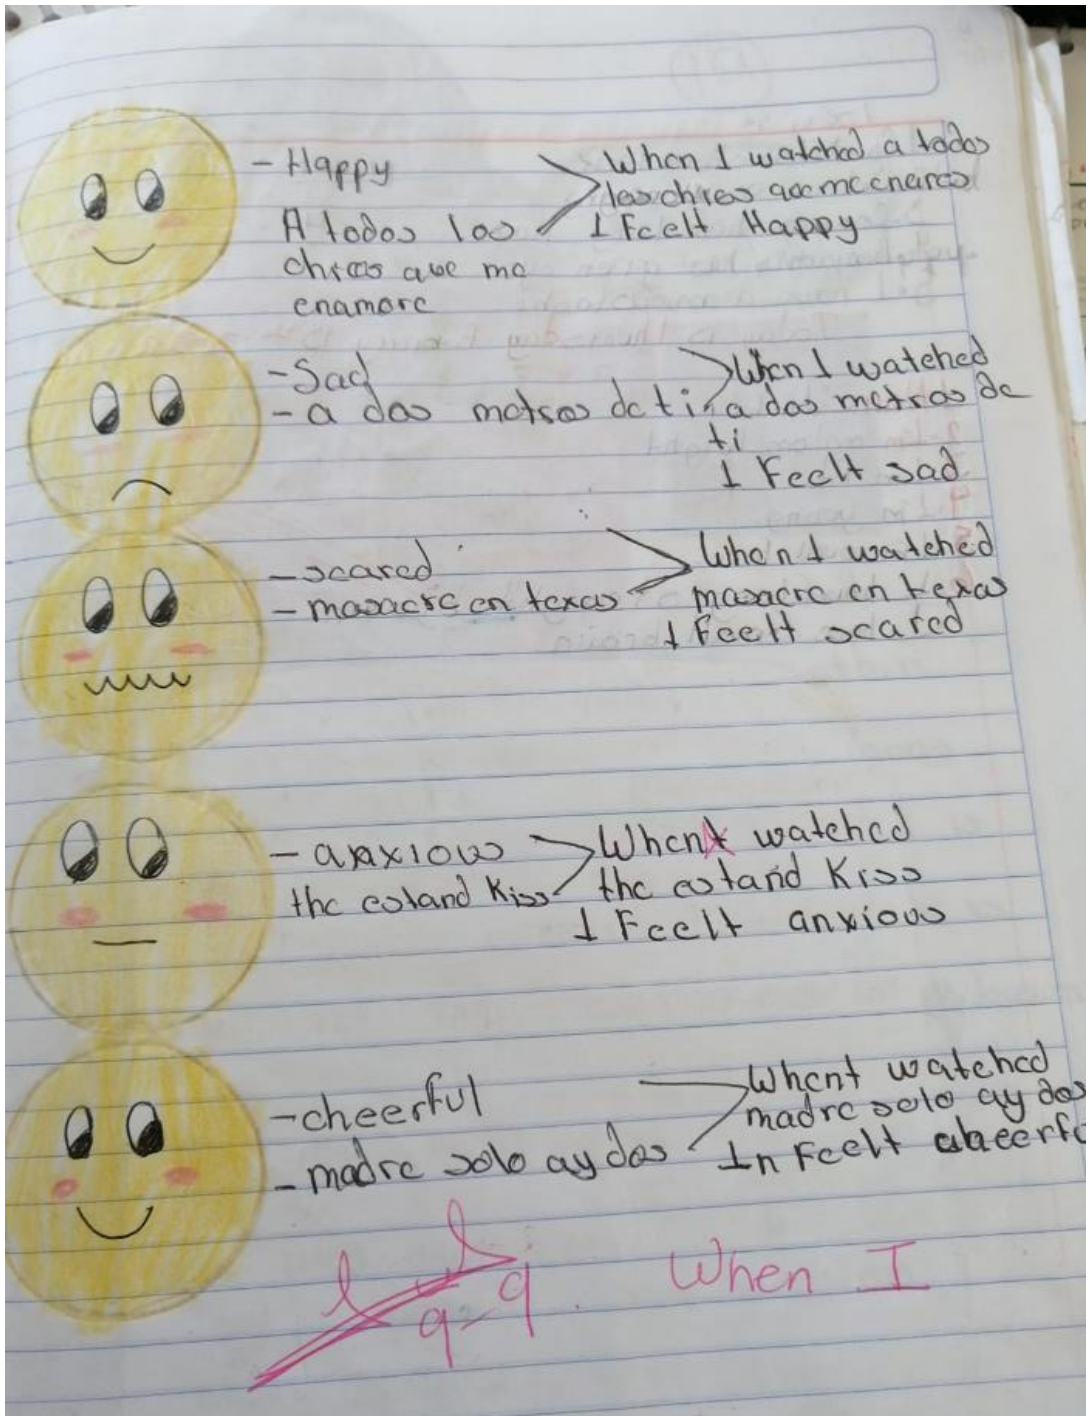 - Happy
A todos los
chicos que me
enamore
When I watched a todos
los chicos que me enaros
I Feelt Happy
- Sad
- a dos metros de ti
When I watched
a dos metros de
ti
I Feelt sad
- scared
- masacre en texas
When I watched
masacre en texas
I Feelt scared
- anxious
the estand Kiss
When watched
the estand Kiss
I Feelt anxious
- cheerful
- madre solo ay dos
Whent watched
madre solo ay dos
In Feelt
When I